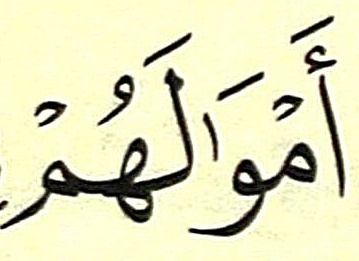 أَمْوَالَهُمْ